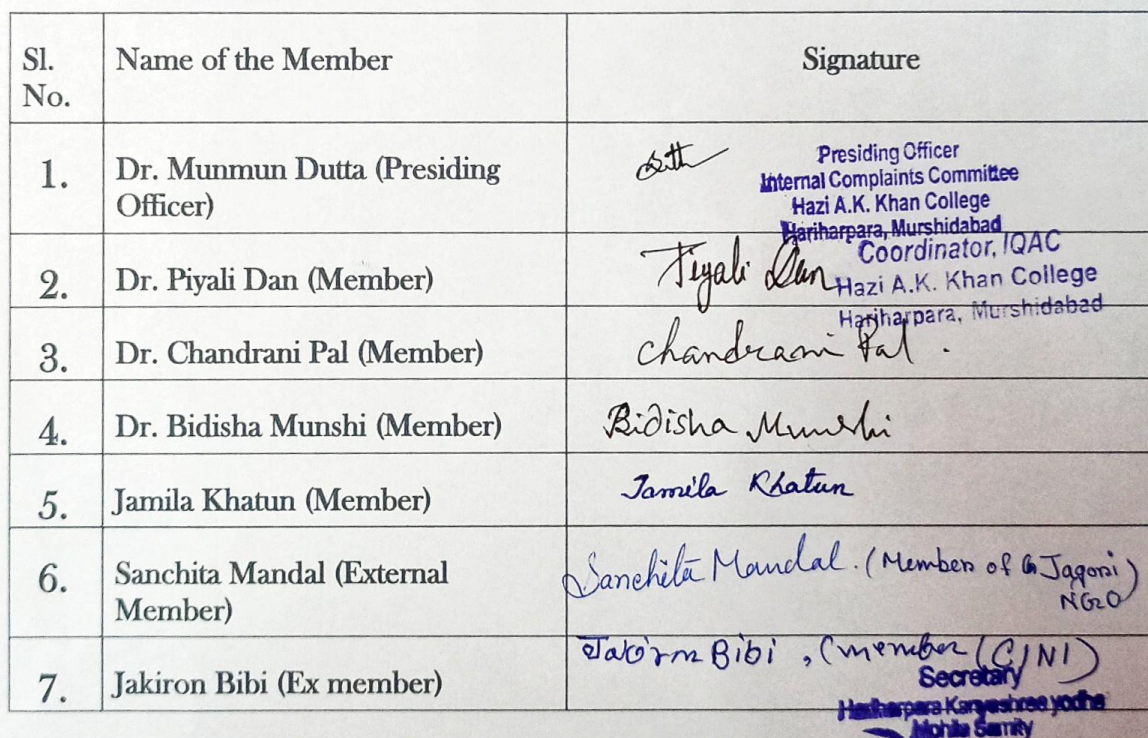 Sl. No.
Name of the Member
Signature
1.
Dr. Munmun Dutta (Presiding
Officer)
Presiding Officer
Internal Complaints Committee
Hazi A.K. Khan College
Hariharpara, Murshidabad
2.
Dr. Piyali Dan (Member)
Piyali Dan
Coordinator, IQAC
Hazi A.K. Khan College
Hariharpara, Murshidabad
3.
Dr. Chandrani Pal (Member)
Chandrani Pal.
4.
Dr. Bidisha Munshi (Member)
Bidisha Munshi
5.
Jamila Khatun (Member)
Jamila Khatun
6.
Sanchita Mandal (External
Member)
Sanchita Mandal. (Member of Jagori)
NGO
7.
Jakiron Bibi (Ex member)
Bibi, (member (CINI)
Secretary
Hariharpara Kanyashree yodha
Mohila Samity